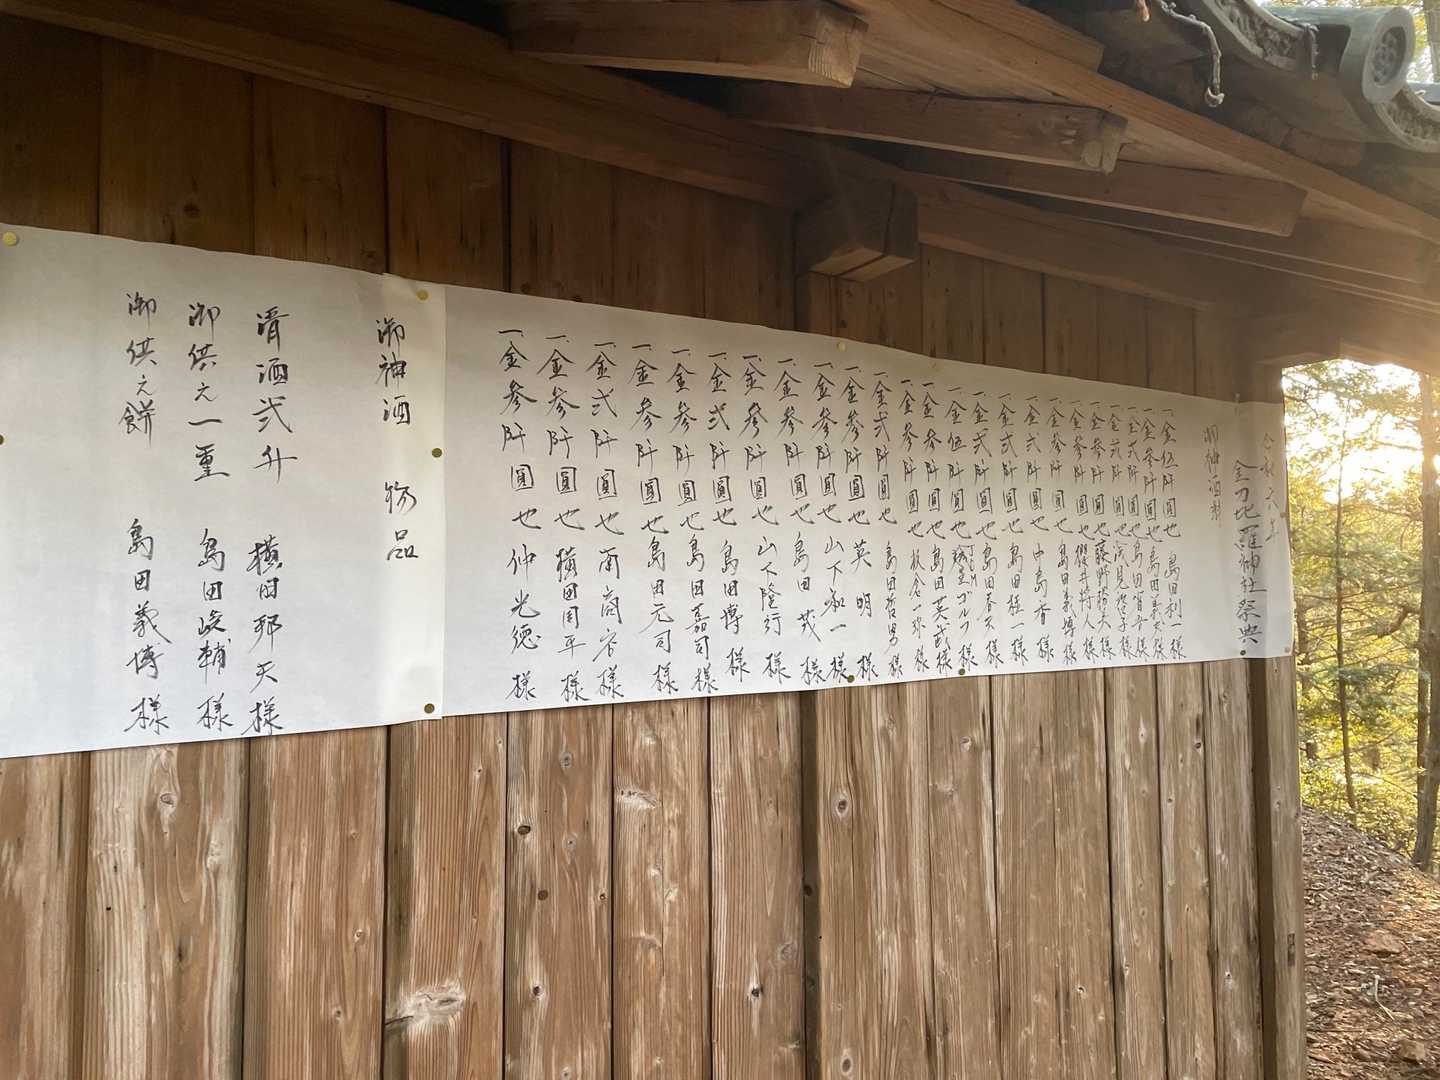 金刀比羅神社祭典
御神酒料
一、金伍阡圓也 島田利一様
一、金参阡圓也 島田義
一、金弐阡圓也 島田
一、金弐阡圓也 浅見
一、金参阡圓也 藤野
一、金参阡圓也 櫻井将人様
一、金弐阡圓也 島田義博様
一、金弐阡圓也 中島香様
一、金弐阡圓也 島田桂一様
一、金弐阡圓也 島田春夫様
一、金伍阡圓也 ゴルフ様
一、金参阡圓也 島田英武様
一、金参阡圓也 板倉一弥様
一、金弐阡圓也 島田哲男様
一、金参阡圓也 英明様
一、金参阡圓也 山下和一様
一、金参阡圓也 島田茂様
一、金参阡圓也 山下隆行様
一、金弐阡圓也 島田博様
一、金参阡圓也 島田嘉司様
一、金参阡圓也 島田元司様
一、金弐阡圓也 南商店様
一、金参阡圓也 横田周平様
一、金参阡圓也 仲光徳様
御神酒 物品
清酒弐升 横田邦夫様
御供え一重 島田峻輔様
御供え餅 島田義博様